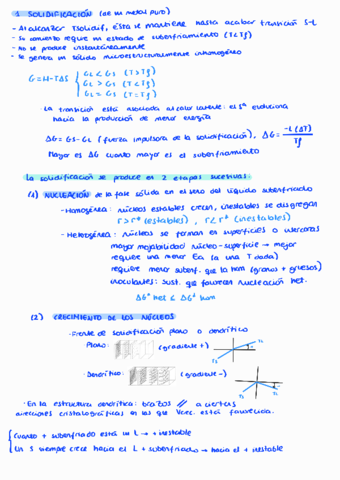 1. SOLIDIFICACIÓN (de un metal puro)
- Al alcanzar Tsolidif, ésta se mantiene hasta acabar transición S-L
- Su comienzo requiere un estado de subenfriamiento (T<Tf)
- No se produce instantáneamente
- Se genera un sólido microestructuralmente inhomogéneo
G=H-TΔS { GL < GS (T>Tf)
GL > GS (T<Tf)
GL = GS (T=Tf)
La transición está asociada al calor latente: el Sª evoluciona
hacia la producción de menor energía
ΔG = GS-GL (fuerza impulsora de la solidificación), ΔG = -L(ΔT)/Tf
Mayor es ΔG cuanto mayor es el subenfriamiento
La solidificación se produce en 2 etapas sucesivas
(1) NUCLEACIÓN de la fase sólida en el seno del líquido subenfriado
- Homogénea: núcleos estables crecen, inestables se disgregan
r>r* (estables), r<r* (inestables)
- Heterogénea: núcleos se forman en superficies o intercaras
mayor mojabilidad núcleo-superficie → mejor
requiere una menor Ea (a una T dada)
requiere menor subenf. que la hom (granos + gruesos)
inoculantes: sust. que favorecen nucleación het.
ΔG* het ≤ ΔG* hom
(2) CRECIMIENTO DE LOS NÚCLEOS
· Frente de solidificación plano o dendrítico
Plano: (gradiente +)
TL
TS
· Dendrítico: (gradiente -)
TS
TL
· En la estructura dendrítica: brazos // a ciertas
direcciones cristalográficas en las que Vcrec. está favorecida.
{ Cuanto + subenfriado está un L → + inestable
Un S siempre crece hacia el L + subenfriado → hacia el + inestable